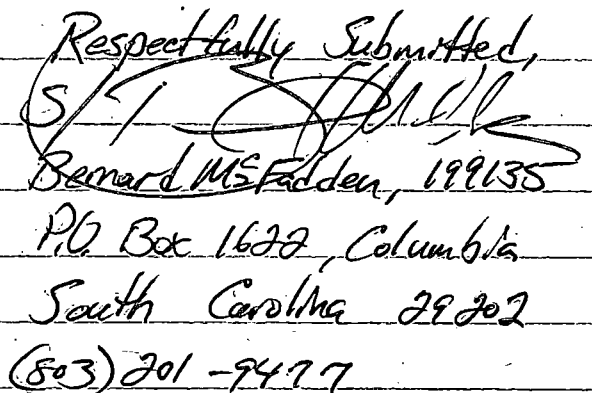 Respectfully Submitted,
S/
Bernard McFadden, 199135
P.O. Box 1622, Columbia
South Carolina 29202
(803) 201-9477